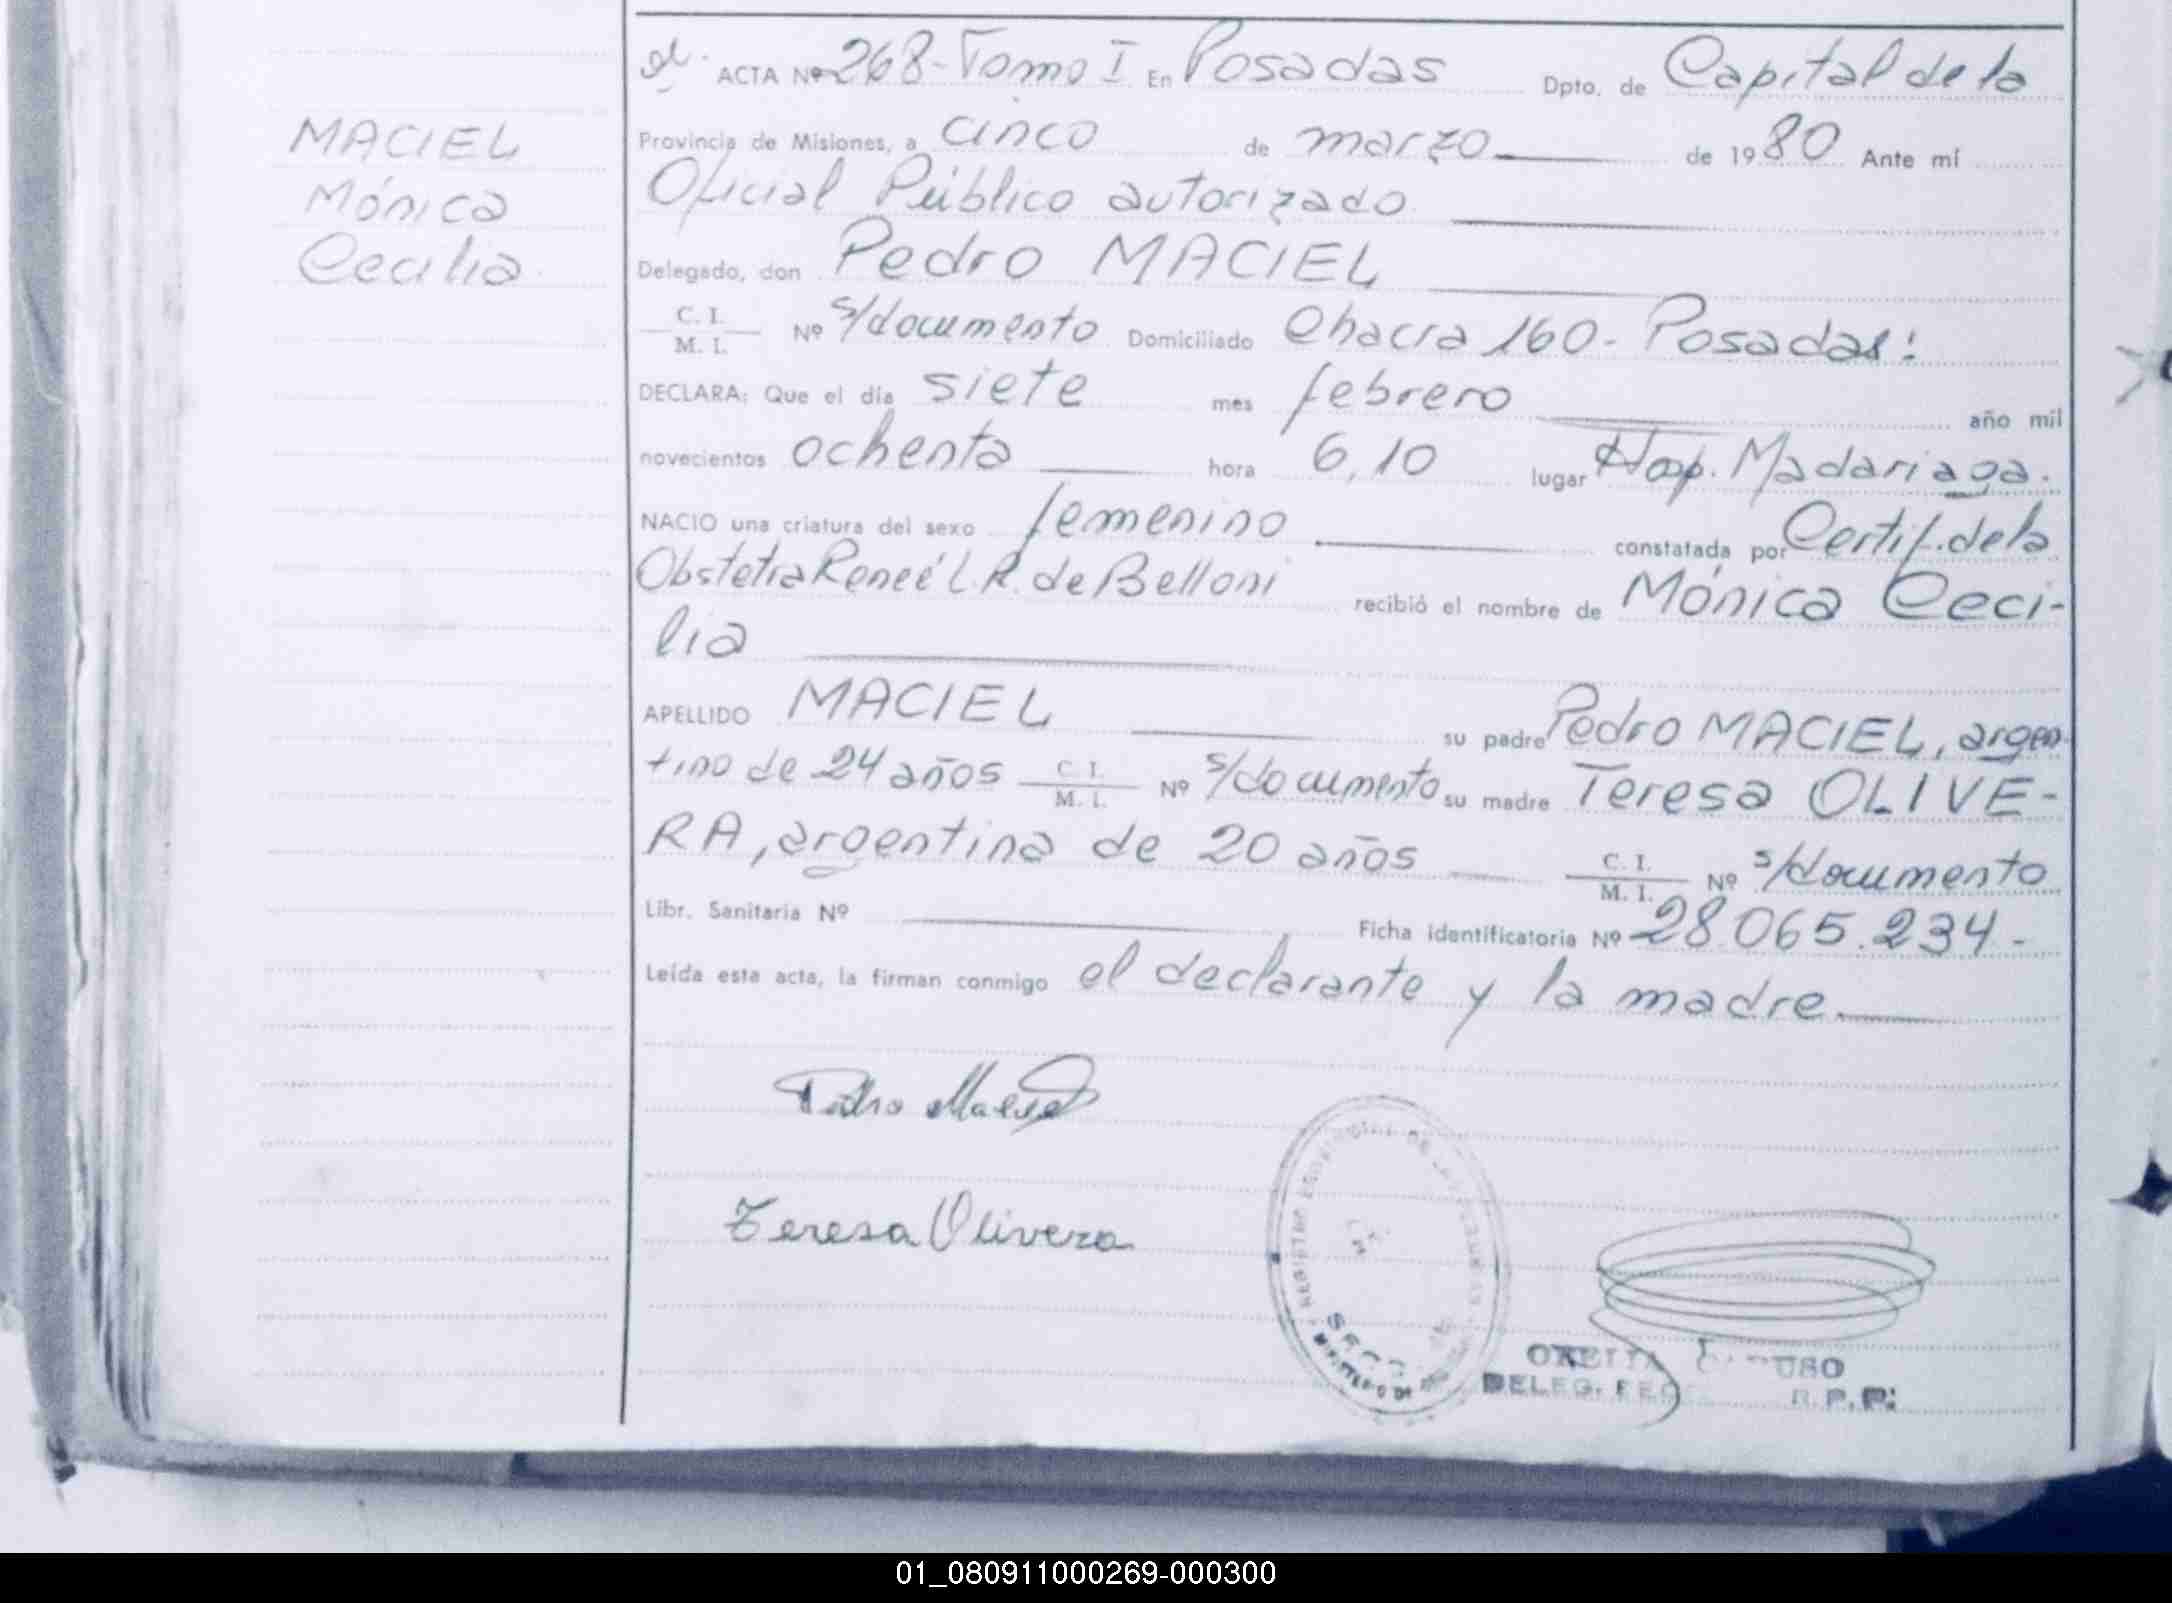 MACIEL
Mónica
Cecilia
ACTA Nº 268 - Tomo I En Posadas Dpto. de Capital de la
Provincia de Misiones, a cinco de marzo de 1980 Ante mí
Oficial Público autorizado
Delegado, don Pedro MACIEL
C. I.
M. I. Nº s/documento Domiciliado Chacra 160 - Posadas:
DECLARA: Que el día siete mes febrero año mil
novecientos ochenta hora 6,10 lugar Hosp. Madariaga.
NACIO una criatura del sexo femenino constatada por Certif. de la
Obstetra Reneé L. R. de Belloni recibió el nombre de Mónica Ceci-
lia
APELLIDO MACIEL su padre Pedro MACIEL, argen-
tino de 24 años C. I.
M. I. Nº s/documento su madre Teresa OLIVE-
RA, argentina de 20 años C. I.
M. I. Nº s/documento
Libr. Sanitaria Nº Ficha identificatoria Nº 28.065.234 -
Leída esta acta, la firman conmigo el declarante y la madre.
Pedro Maciel
Teresa Olivera
REGISTRO DE
DELEG. R.P.P.
01_080911000269-000300